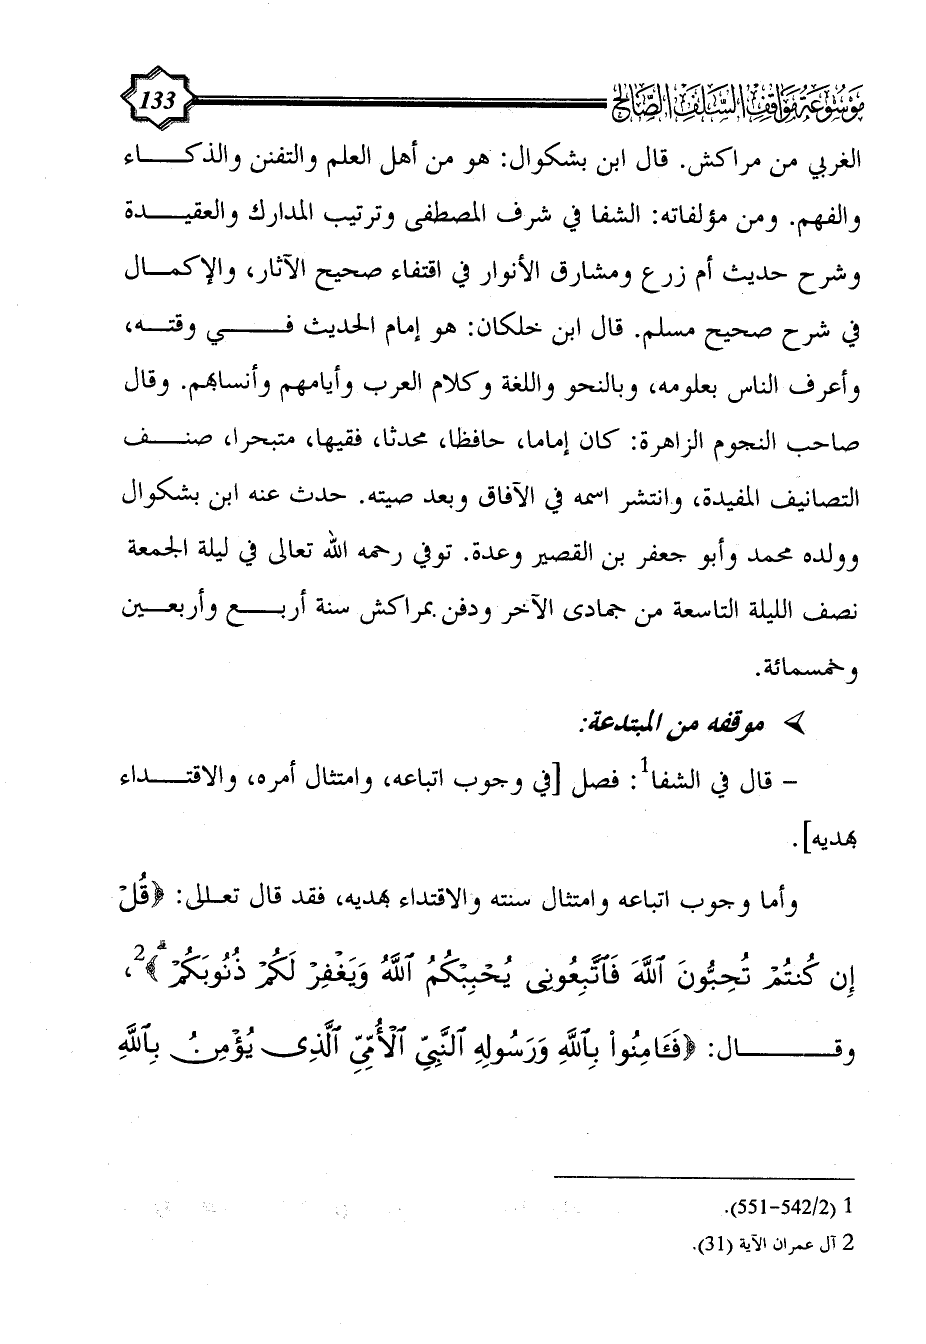 موسوعة مواقف السلف الصالح
133
الغربي من مراكش. قال ابن بشكوال: هو من أهل العلم والتفنن والذكاء
والفهم. ومن مؤلفاته: الشفا في شرف المصطفى وترتيب المدارك والعقيدة
وشرح حديث أم زرع ومشارق الأنوار في اقتفاء صحيح الآثار، والإكمال
في شرح صحيح مسلم. قال ابن خلكان: هو إمام الحديث في وقته،
وأعرف الناس بعلومه، وبالنحو واللغة وكلام العرب وأيامهم وأنسابهم. وقال
صاحب النجوم الزاهرة: كان إماما، حافظا، محدثا، فقيها، متبحرا، صنف
التصانيف المفيدة، وانتشر اسمه في الآفاق وبعد صيته. حدث عنه ابن بشكوال
وولده محمد وأبو جعفر بن القصير وعدة. توفي رحمه الله تعالى في ليلة الجمعة
نصف الليلة التاسعة من جمادى الآخر ودفن بمراكش سنة أربع وأربعين
وخمسمائة.
➢ موقفه من المبتدعة:
- قال في الشفا1: فصل [في وجوب اتباعه، وامتثال أمره، والاقتداء
بهديه].
وأما وجوب اتباعه وامتثال سنته والاقتداء بهديه، فقد قال تعالى: ﴿قُلْ
إِن كُنتُمْ تُحِبُّونَ ٱللَّهَ فَٱتَّبِعُونِى يُحْبِبْكُمُ ٱللَّهُ وَيَغْفِرْ لَكُمْ ذُنُوبَكُمْ ۗ﴾2،
وقال: ﴿فَـَٔامِنُوا۟ بِٱللَّهِ وَرَسُولِهِ ٱلنَّبِىِّ ٱلْأُمِّىِّ ٱلَّذِى يُؤْمِنُ بِٱللَّهِ
1 (542/2-551).
2 آل عمران الآية (31).